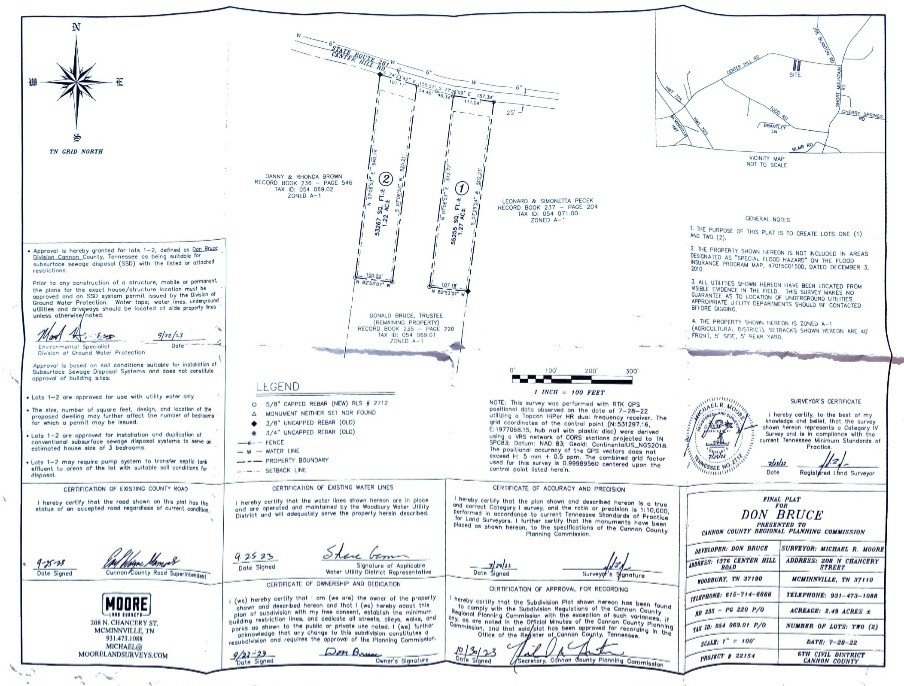 N
W
E
S
TN GRID NORTH
STATE ROUTE 281
CENTER HILL RD.
W
6"
W
6"
W
6"
25'
117.04
157.39
DANNY & RHONDA BROWN
RECORD BOOK 236 - PAGE 546
TAX ID: 054 069.02
ZONED A-1
2
53267 SQ. FT.±
1.22 AC±
1
1.27 AC±
LEONARD & SIMONETTA PECEK
RECORD BOOK 237 - PAGE 204
TAX ID: 054 071.00
ZONED A-1
100.00
107.18
DONALD BRUCE, TRUSTEE
(REMAINING PROPERTY)
RECORD BOOK 235 - PAGE 220
TAX ID: 054 069.01
ZONED A-1
CENTER HILL RD
SITE
SHORT MOUNTAIN RD
CHERRY SPRINGS RD
VICINITY MAP
NOT TO SCALE
GENERAL NOTES
1. THE PURPOSE OF THIS PLAT IS TO CREATE LOTS ONE (1)
AND TWO (2).
2. THE PROPERTY SHOWN HEREON IS NOT INCLUDED IN AREAS
DESIGNATED AS "SPECIAL FLOOD HAZARD" ON THE FLOOD
INSURANCE PROGRAM MAP, 47015C0150D, DATED DECEMBER 3,
2010.
3. ALL UTILITIES SHOWN HEREON HAVE BEEN LOCATED FROM
VISIBLE EVIDENCE IN THE FIELD. THIS SURVEY MAKES NO
GUARANTEE AS TO LOCATION OF UNDERGROUND UTILITIES.
APPROPRIATE UTILITY DEPARTMENTS SHOULD BE CONTACTED
BEFORE DIGGING.
4. THE PROPERTY SHOWN HEREON IS ZONED A-1
(AGRICULTURAL DISTRICT). SETBACKS SHOWN HEREON ARE 40'
FRONT, 5' SIDE, 5' REAR YARD.
• Approval is hereby granted for lots 1-2, defined as Don Bruce
Division Cannon County, Tennessee as being suitable for
subsurface sewage disposal (SSD) with the listed or attached
restrictions.
Prior to any construction of a structure, mobile or permanent
the plans for the exact house/structure location must be
approved and an SSD system permit issued by the Division of
Ground Water Protection. Water taps, water lines, underground
utilities and driveways should be located at side property lines
unless otherwise notes.
9/22/23
Environmental Specialist Date
Division of Ground Water Protection
Approval is based on soil conditions suitable for installation of
Subsurface Sewage Disposal Systems and does not constitute
approval of building sites.
• Lots 1-2 are approved for use with utility water only.
• The size, number of square feet, design, and location of the
proposed dwelling may further affect the number of bedrooms
for which a permit may be issued.
• Lots 1-2 are approved for installation and duplication of
conventional subsurface sewage disposal systems to serve an
estimated house size of 3 bedrooms.
• Lots 1-2 may require pump system to transfer septic tank
effluent to areas of the lot with suitable soil conditions for
disposal.
LEGEND
5/8" CAPPED REBAR (NEW) RLS # 2712
MONUMENT NEITHER SET NOR FOUND
3/8" UNCAPPED REBAR (OLD)
3/4" UNCAPPED REBAR (OLD)
FENCE
WATER LINE
PROPERTY BOUNDARY
SETBACK LINE
0 100 200 300
1 INCH = 100 FEET
NOTE: This survey was performed with RTK GPS
positional data observed on the date of 7-28-22
utilizing a Topcon HiPer HR dual frequency receiver. The
grid coordinates of the control point (N:531297.16,
E:1977058.15, hub nail with plastic disc) were derived
using a VRS network of CORS stations projected to TN
SPC83; Datum: NAD 83; Geoid: ContinentalUS_NGS2018.
The positional accuracy of the GPS vectors does not
exceed H: 5 mm + 0.5 ppm. The combined grid factor
used for this survey is 0.99989560 centered upon the
control point listed herein.
SURVEYOR'S CERTIFICATE
I hereby certify, to the best of my
knowledge and belief, that the survey
shown hereon represents a Category IV
Survey and is in compliance with the
current Tennessee Minimum Standards of
Practice.
Date Registered Land Surveyor
CERTIFICATION OF EXISTING COUNTY ROAD
I hereby certify that the road shown on this plat has the
status of an accepted road regardless of current condition.
9-25-23
Date Signed Cannon County Road Superintendent
CERTIFICATION OF EXISTING WATER LINES
I hereby certify that the water lines shown hereon are in place
and are operated and maintained by the Woodbury Water Utility
District and wil adequately serve the property herein described.
9 25 23
Date Signed
Signature of Applicable
Water Utility District Representative
CERTIFICATION OF ACCURACY AND PRECISION
I hereby certify that the plan shown and described hereon is a true
and correct Category I survey, and the ratio or precision is 1:10,000,
performed in accordance to current Tennessee Standards of Practice
for Land Surveyors. I further certify that the monuments have been
placed as shown hereon, to the specifications of the Cannon County
Planning Commission.
Date Signed Surveyor's Signature
MOORE
LAND SURVEYING
208 N. CHANCERY ST.
MCMINNVILLE, TN
931.473.1088
MICHAEL@
MOORELANDSURVEYS.COM
CERTIFICATION OF OWNERSHIP AND DEDICATION
I (we) hereby certify that I am (we are) the owner of the property
shown and described hereon and that I (we) hereby adopt this
plan of subdivision with my free consent, establish the minimum
building restriction lines, and dedicate all streets, alleys, walks, and
parks as shown to the public or private use noted. I (we) further
acknowledge that any change to this subdivision constitutes a
resubdivision and requires the approval of the Planning Commission.
9/22-23 Don Bruce
Date Signed Owner's Signature
CERTIFICATION OF APPROVAL FOR RECORDING
I hereby certify that the Subdivision Plat shown hereon has been found
to comply with the Subdivision Regulations of the Cannon County
Regional Planning Commission with the exception of such variances, if
any, as are noted in the Official Minutes of the Cannon County Planning
Commission, and that said plat has been approved for recording in the
Office of the Register of Cannon County, Tennessee.
10/30/23
Date Signed Secretary, Cannon County Planning Commission
FINAL PLAT
FOR
DON BRUCE
PRESENTED TO
CANNON COUNTY REGIONAL PLANNING COMMISSION
DEVELOPER: DON BRUCE SURVEYOR: MICHAEL R. MOORE
ADDRESS: 1376 CENTER HILL ROAD ADDRESS: 208 N CHANCERY STREET
WOODBURY, TN 37190 MCMINNVILLE, TN 37110
TELEPHONE: 615-714-6666 TELEPHONE: 931-473-1088
RD 235 - PG 220 P/O ACREAGE: 2.49 ACRES ±
TAX ID: 054 069.01 P/O NUMBER OF LOTS: TWO (2)
SCALE: 1" = 100' DATE: 7-28-22
PROJECT # 22154 6TH CIVIL DISTRICT
CANNON COUNTY